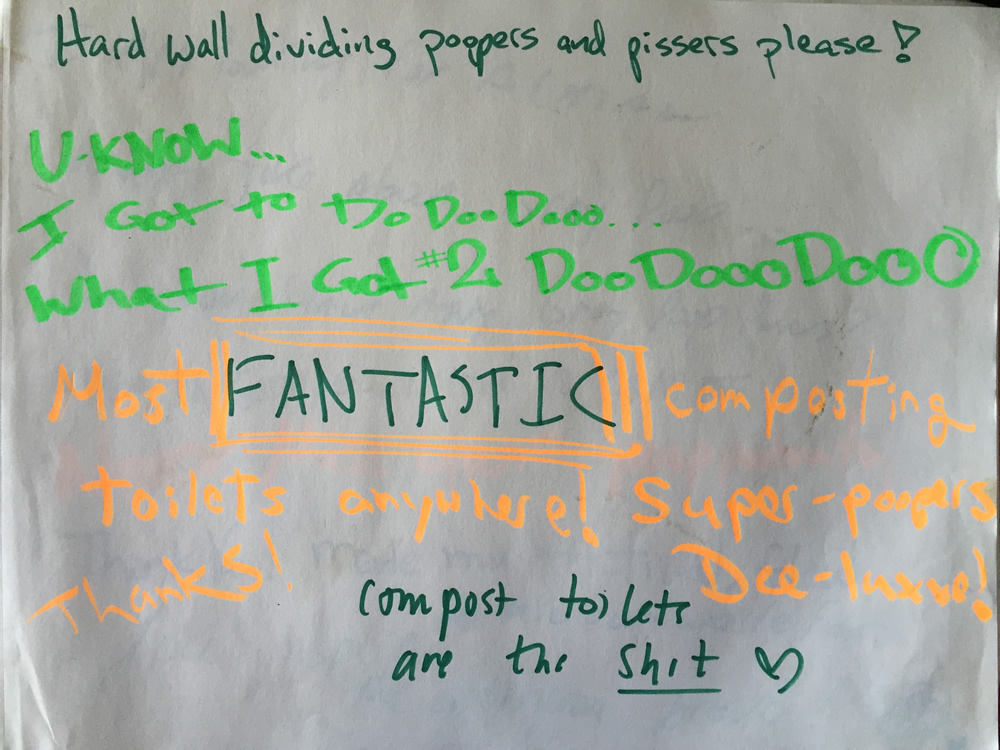 Hard wall dividing poopers and pissers please!
U-KNOW...
I Got to Do DooDooo...
What I Got #2 DooDoooDoooO
Most FANTASTIC composting
toilets anywhere! Super-poopers
Thanks! Dee-luxxe!
compost toilets
are the shit